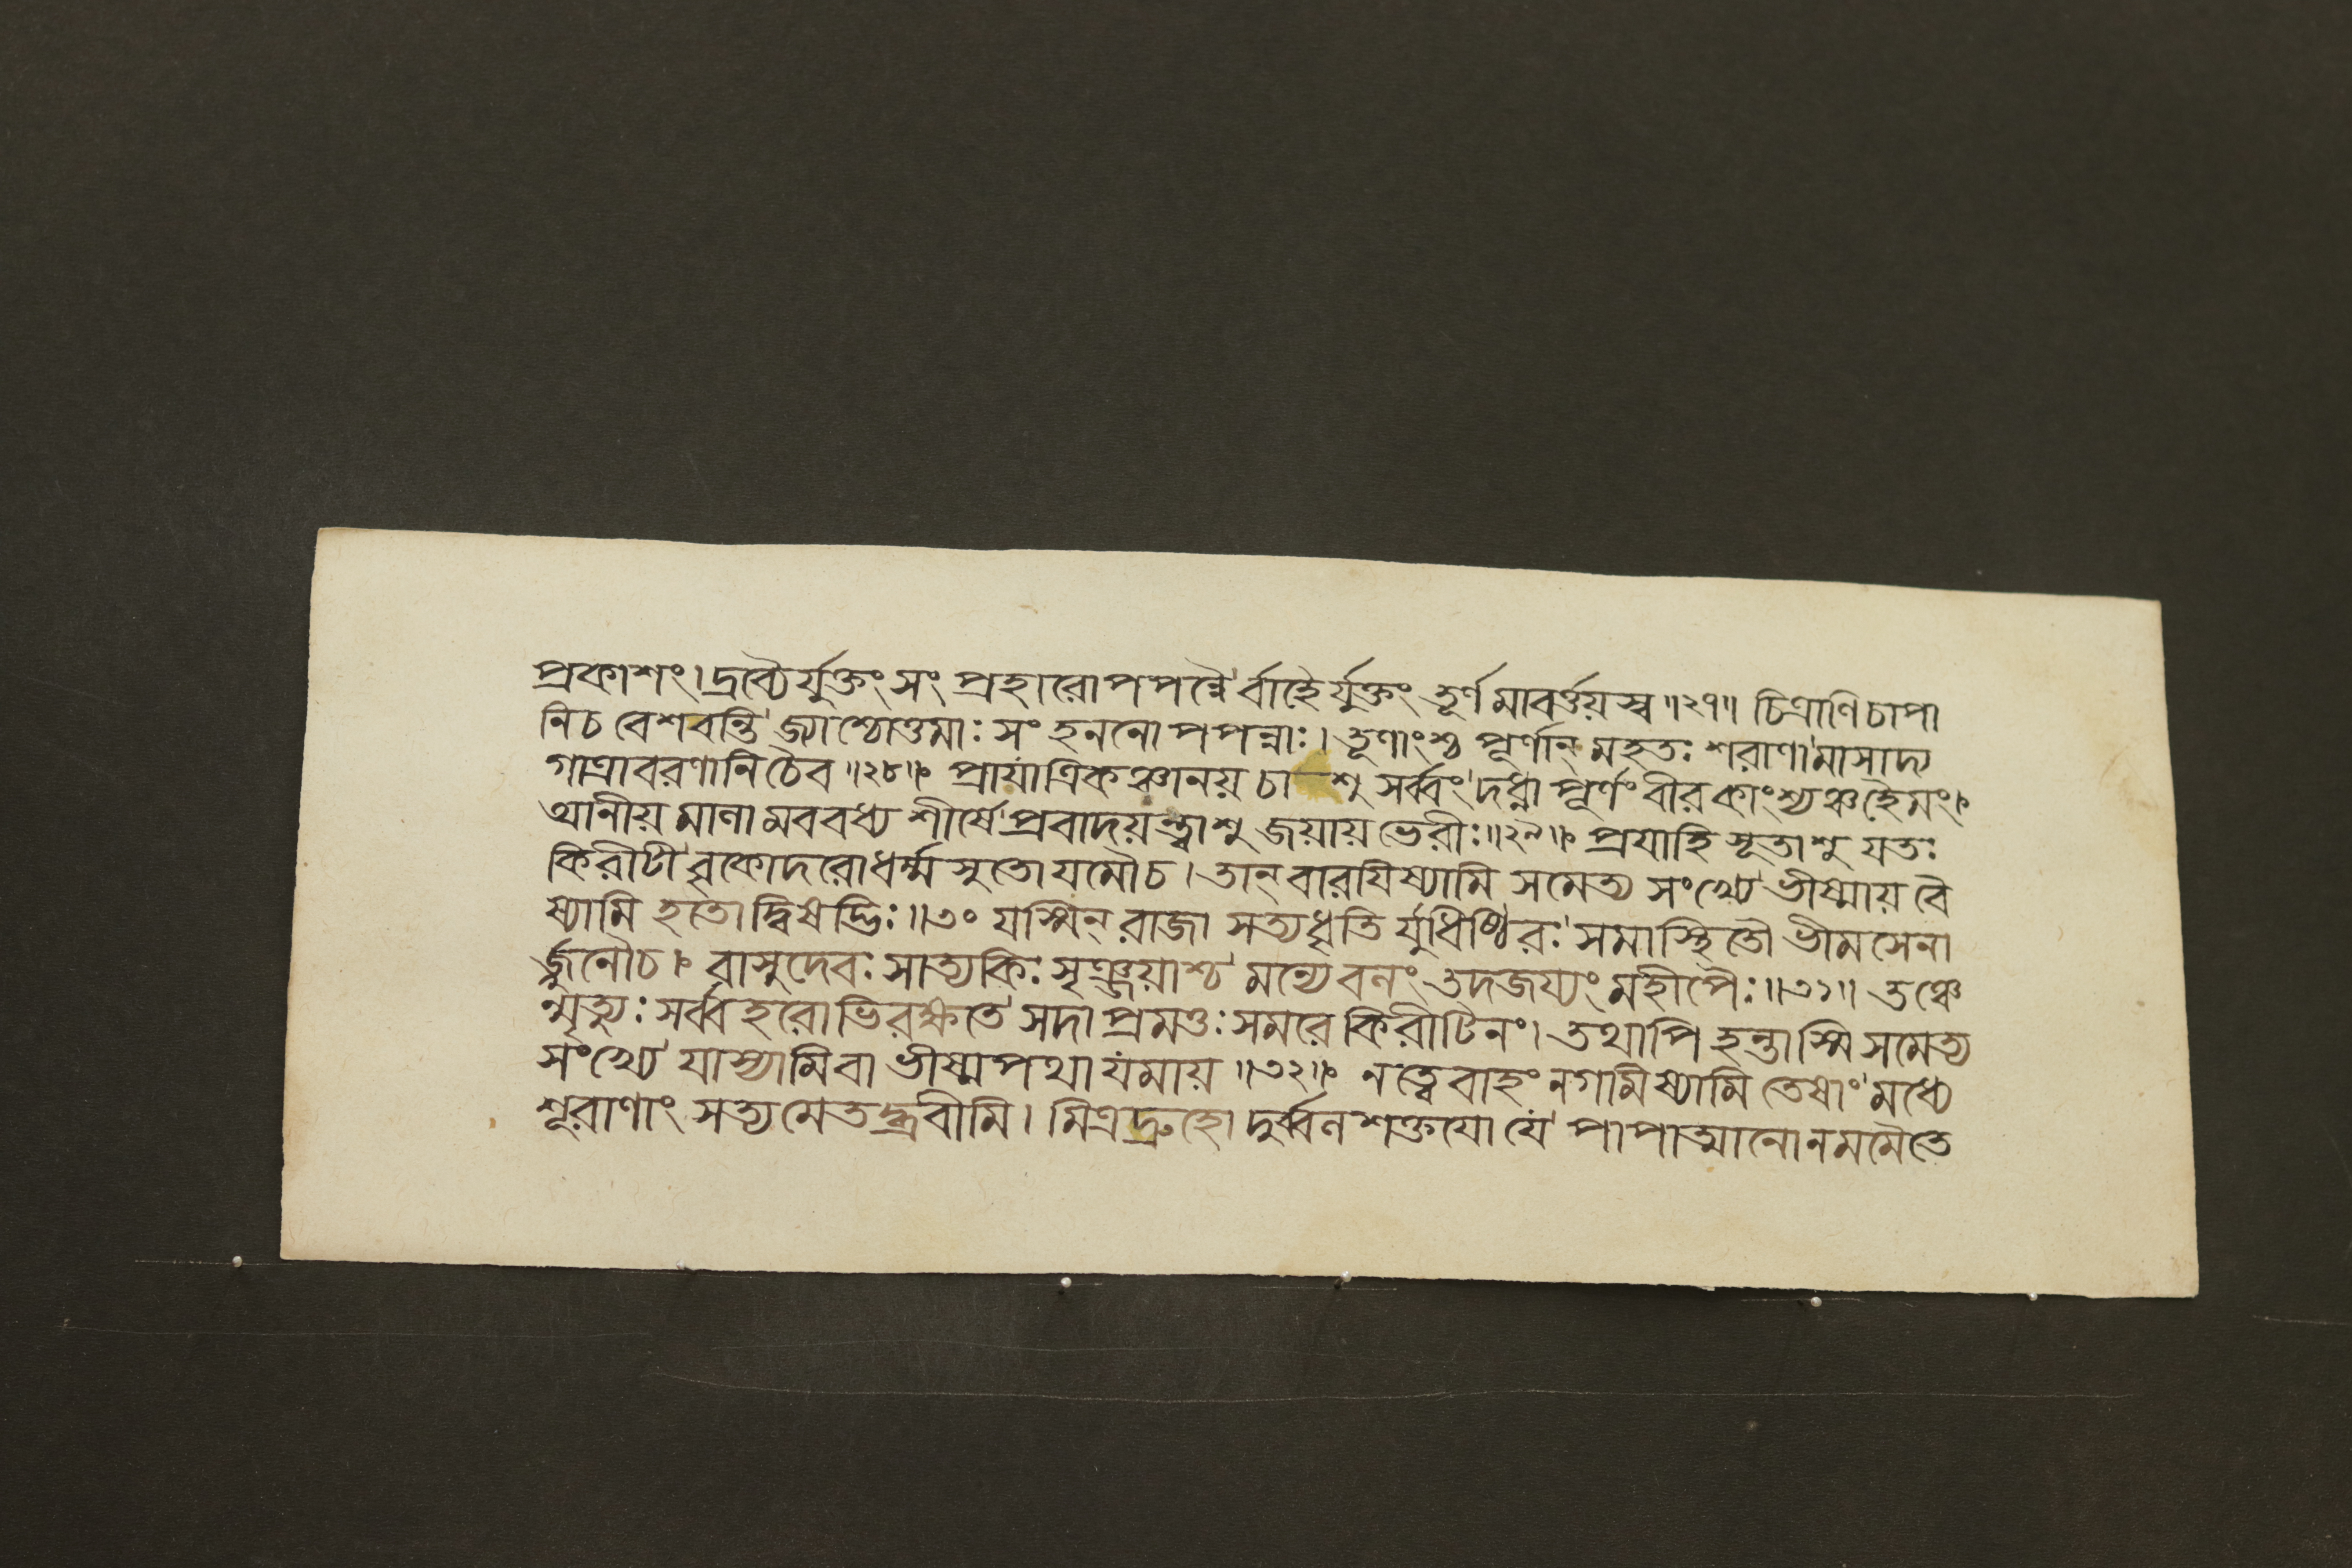 প্রকাশং।দ্রব্যৈর্যুক্তং সং প্রহারোপপন্নৈর্বাহৈর্যুক্তং তূর্ণমাবর্ত্তয়স্ব॥২৭॥ চিত্রাণিচাপা
নিচ বেগবন্তি জ্যাশ্চোত্তমাঃ সং হননো পপন্নাঃ। তূণাংশ্চ পূর্ণান্ মহতঃ শরাণামাসাদ্য
গাত্রাবরণানিচৈব॥২৮॥ প্রায়াত্রিকঞ্চানয় চাশু সর্ব্বং দধ্না পূর্ণং বীরকাংশ্যঞ্চহৈমং।
আনীয় মাণামববধ্য শীর্ষে প্রবাদয়ন্ত্বাশু জয়ায় ভেরীঃ॥২৯॥ প্রযাহি সূতাশু যতঃ
কিরীটী বৃকোদরোধর্ম্মসুতো যমৌচ। তান্ বারযিষ্যামি সমেত্য সংখ্যে ভীষ্মায় বৈ
ষ্যামি হতোদ্বিষদ্ভিঃ॥৩০ যস্মিন্ রাজা সত্যধৃতি র্যুধিষ্ঠিরঃ সমাস্থিতৌ ভীমসেনা
র্জ্জুনৌচ। বাসুদেবঃ সাত্যকিঃ সৃঞ্জয়াশ্চ মন্যেবনং তদজয্যং মহীপৈঃ॥৩১॥ তঞ্চে
ন্মৃত্যুঃ সর্ব্বহরোভিরক্ষতে সদা প্রমত্তঃ সমরে কিরীটিনং। তথাপি হন্তাস্মি সমেত্য
সংখ্যে যাস্যামিবা ভীষ্মপথা যমায়॥৩২॥ নত্বেবাহং নগামিষ্যামি তেষাং মধ্যে
শূরাণাং সত্যমেতদ্ব্রবীমি। মিত্রদ্রুহো দুর্ব্বনশক্তযো যে পাপাত্মানোনমমৈতে